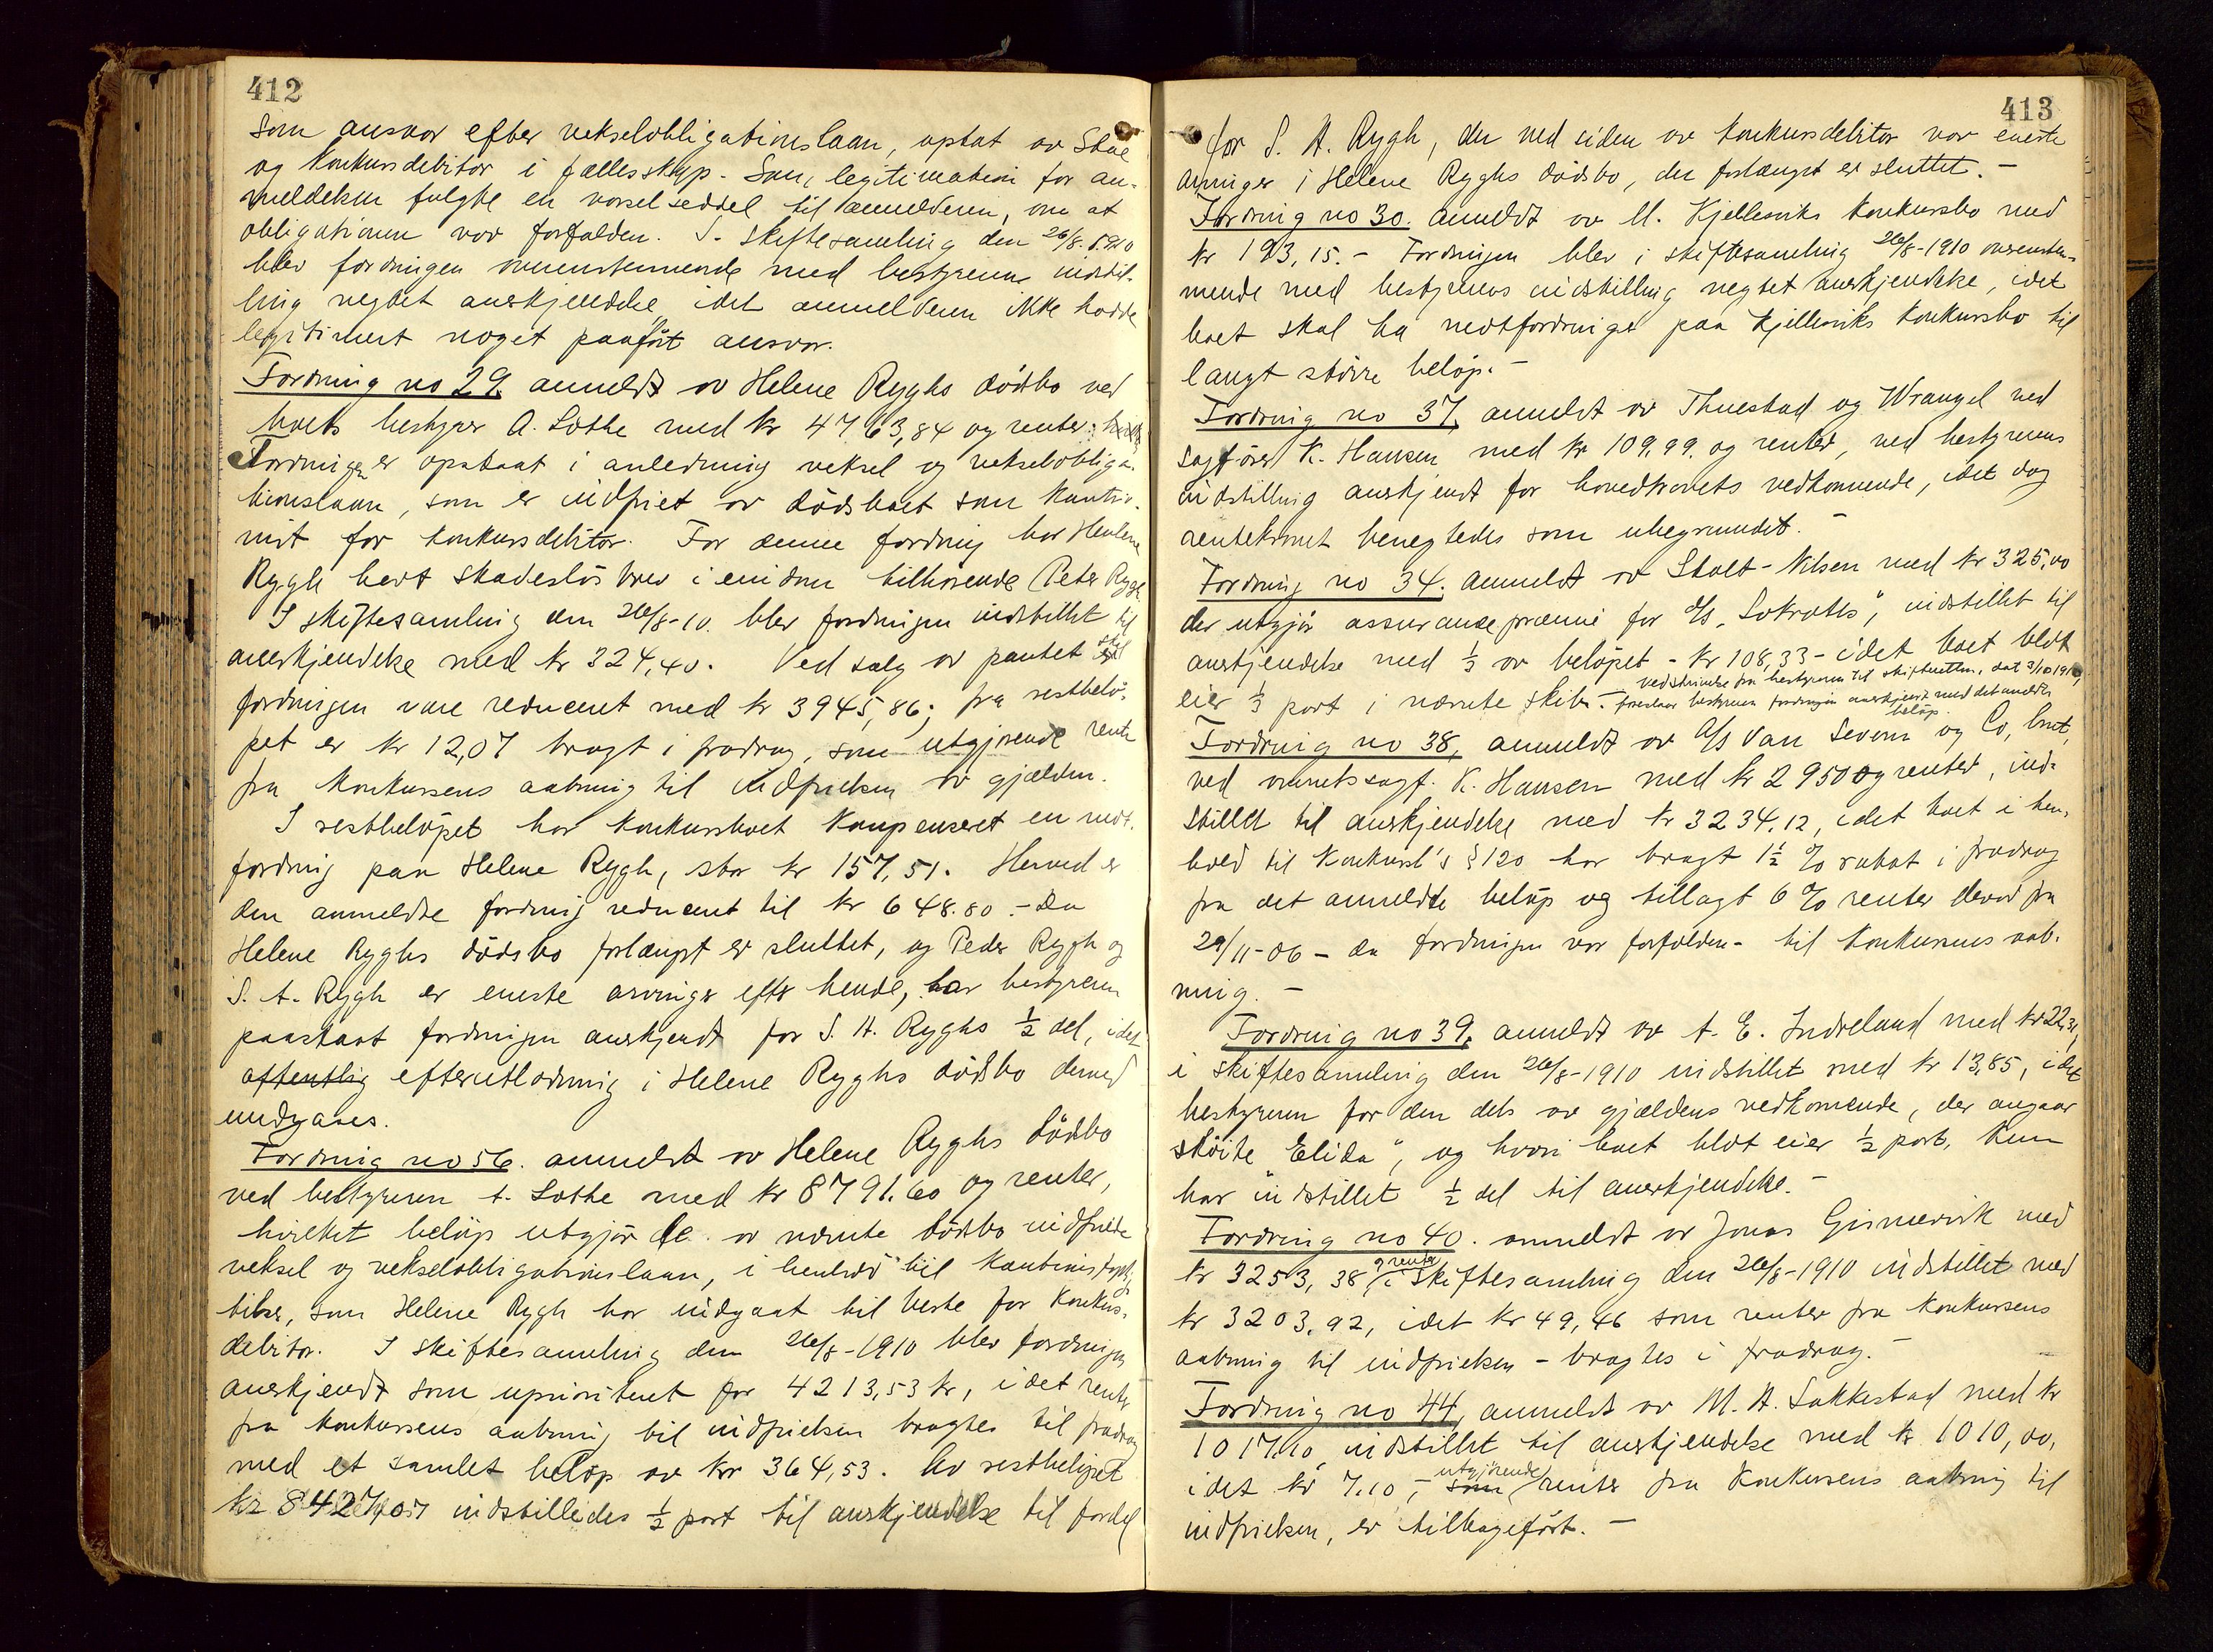 412
som ansvar efter vekselobligationslaan, optat av Skae
og konkursdebitor i fællesskap. Som legitimation for an-
meldelsen fulgte en varselseddel til anmelderen, om at
obligationen var forfalden. I skiftesamling den 26/8-1910
blev fordringen overenstemmende med bestyrerens indstil-
ling negtet anerkjendelse idet anmelderen ikke hadde
legitimert noget paaført ansvar.
Fordring no 29. anmeldt av Helene Ryghs dödsbo ved
boets bestyrer A. Lothe med kr 4763,84 og renter.
Fordringen er opstaat i anledning veksel og vekselobliga-
tionslaan, som er indfriet av dödsboet som kautio-
nist for konkursdebitor. For denne fordring har Helene
Rygh havt skadeslösbrev i eiendom tilhörende Peter Rygh
I skiftesamling den 26/8-10. blev fordringen indstillet til
anerkjendelse med kr 324,40. Ved salg av pantet skal
fordringen være reducert med kr 3945,86; fra restbelö-
pet er kr 12,07 bragt i fradrag, som utgjörende rente
fra konkursens aabning til indfrielsen av gjælden.
I restbelöpet har konkursboet kompenseret en mot-
fordring paa Helene Rygh, stor kr 157,51. Herved er
den anmeldte fordring reducert til kr 648.80.- Da
Helene Ryghs dödsbo forlængst er sluttet, og Peder Rygh og
S. A. Rygh er eneste arvinger efter hende, har bestyreren
paastaat fordringen anerkjendt for S. A. Ryghs ½ del, idet
offentlig efterutlodning i Helene Ryghs dödsbo derved
undgaaes.
Fordring no 56. anmeldt av Helene Ryghs dödsbo
ved bestyreren A. Lothe med kr 8791.60 og renter,
hvilket belöp utgjör de av nævnte dödsbo indfriede
veksel og vekselobligationslaan, i henhold til kautionsforplig-
telser, som Helene Rygh har indgaat til beste for konkurs-
debitor. I skiftesamling den 26/8-1910 blev fordringen
anerkjendt som uprioritert for 4213,53 kr, idet renter
fra konkursens aabning til indfrielsen bragtes til fradrag
med et samlet belöp av kr 364,53. Av restbelöpet
kr 8427,07 indstilledes ½ part til anerkjendelse til fordel
413
for S. A. Rygh, der ved siden av konkursdebitor var eneste
arvinger i Helene Ryghs dödsbo, der forlængst er sluttet.-
Fordring no 30. anmeldt av M. Kjellesviks konkursbo med
kr 193,15.- Fordringen blev i skiftesamling 26/8-1910 overenstem-
mende med bestyrerens indstilling negtet anerkjendelse, idet
boet skal ha motfordringer paa Kjellesviks konkursbo til
langt större belöp.-
Fordring no 37. anmeldt av Thuestad og Wrangel ved
sagförer K. Hansen med kr 109,99. og renter, ved bestyrerens
indstilling anerkjendt for hovedkravets vedkommende, idet dog
rentekravet benegtedes som ubegrundet.-
Fordring no 34. anmeldt av Stolt-Nilsen med kr 325,00
der utgjör assurancepræmie for D/S „Sokrates“, indstillet til
anerkjendelse med ⅓ av belöpet - kr 108,33 - idet boet blot
eier ⅓ part i nævnte skib.- Ved skrivelse fra bestyreren til skifteretten, dat 3/10 1910,
foreslaar bestyreren fordringen anerkjendt med det anmeldte
belöp.
Fordring no 38, anmeldt av A/S Van Severen og Co, Lmt,
ved overretssagf. K. Hansen med kr 2950 og renter, ind-
stillet til anerkjendelse med kr 3234.12, idet boet i hen-
hold til Konkursl's § 120 har bragt 1½ % rabat i fradrag
fra det anmeldte belöp og tillagt 6 % renter derav fra
29/11-06 - da fordringen var forfalden - til konkursens aab-
ning.-
Fordring no 39. anmeldt av A. E. Indreland med kr 22,31,
i skiftesamling den 26/8-1910 indstillet med kr 13,85, idet
bestyreren for den dels av gjældens vedkomende, der angaar
sköite „Elida“, og hvori boet blot eier ½ part, kun
har indstillet ½ del til anerkjendelse.-
Fordring no 40. anmeldt av Jonas Gismervik med
kr 3253,38 og renter i skiftesamling den 26/8-1910 indstillet med
kr 3203,92, idet kr 49,46 som renter fra konkursens
aabning til indfrielsen - bragtes i fradrag.-
Fordring no 44, anmeldt av M. A. Sakkestad med kr
1017.10, indstillet til anerkjendelse med kr 1010,00,
idet kr 7.10,- som utgjörende renter fra konkursens aabning til
indfrielsen, er tilbageført.-